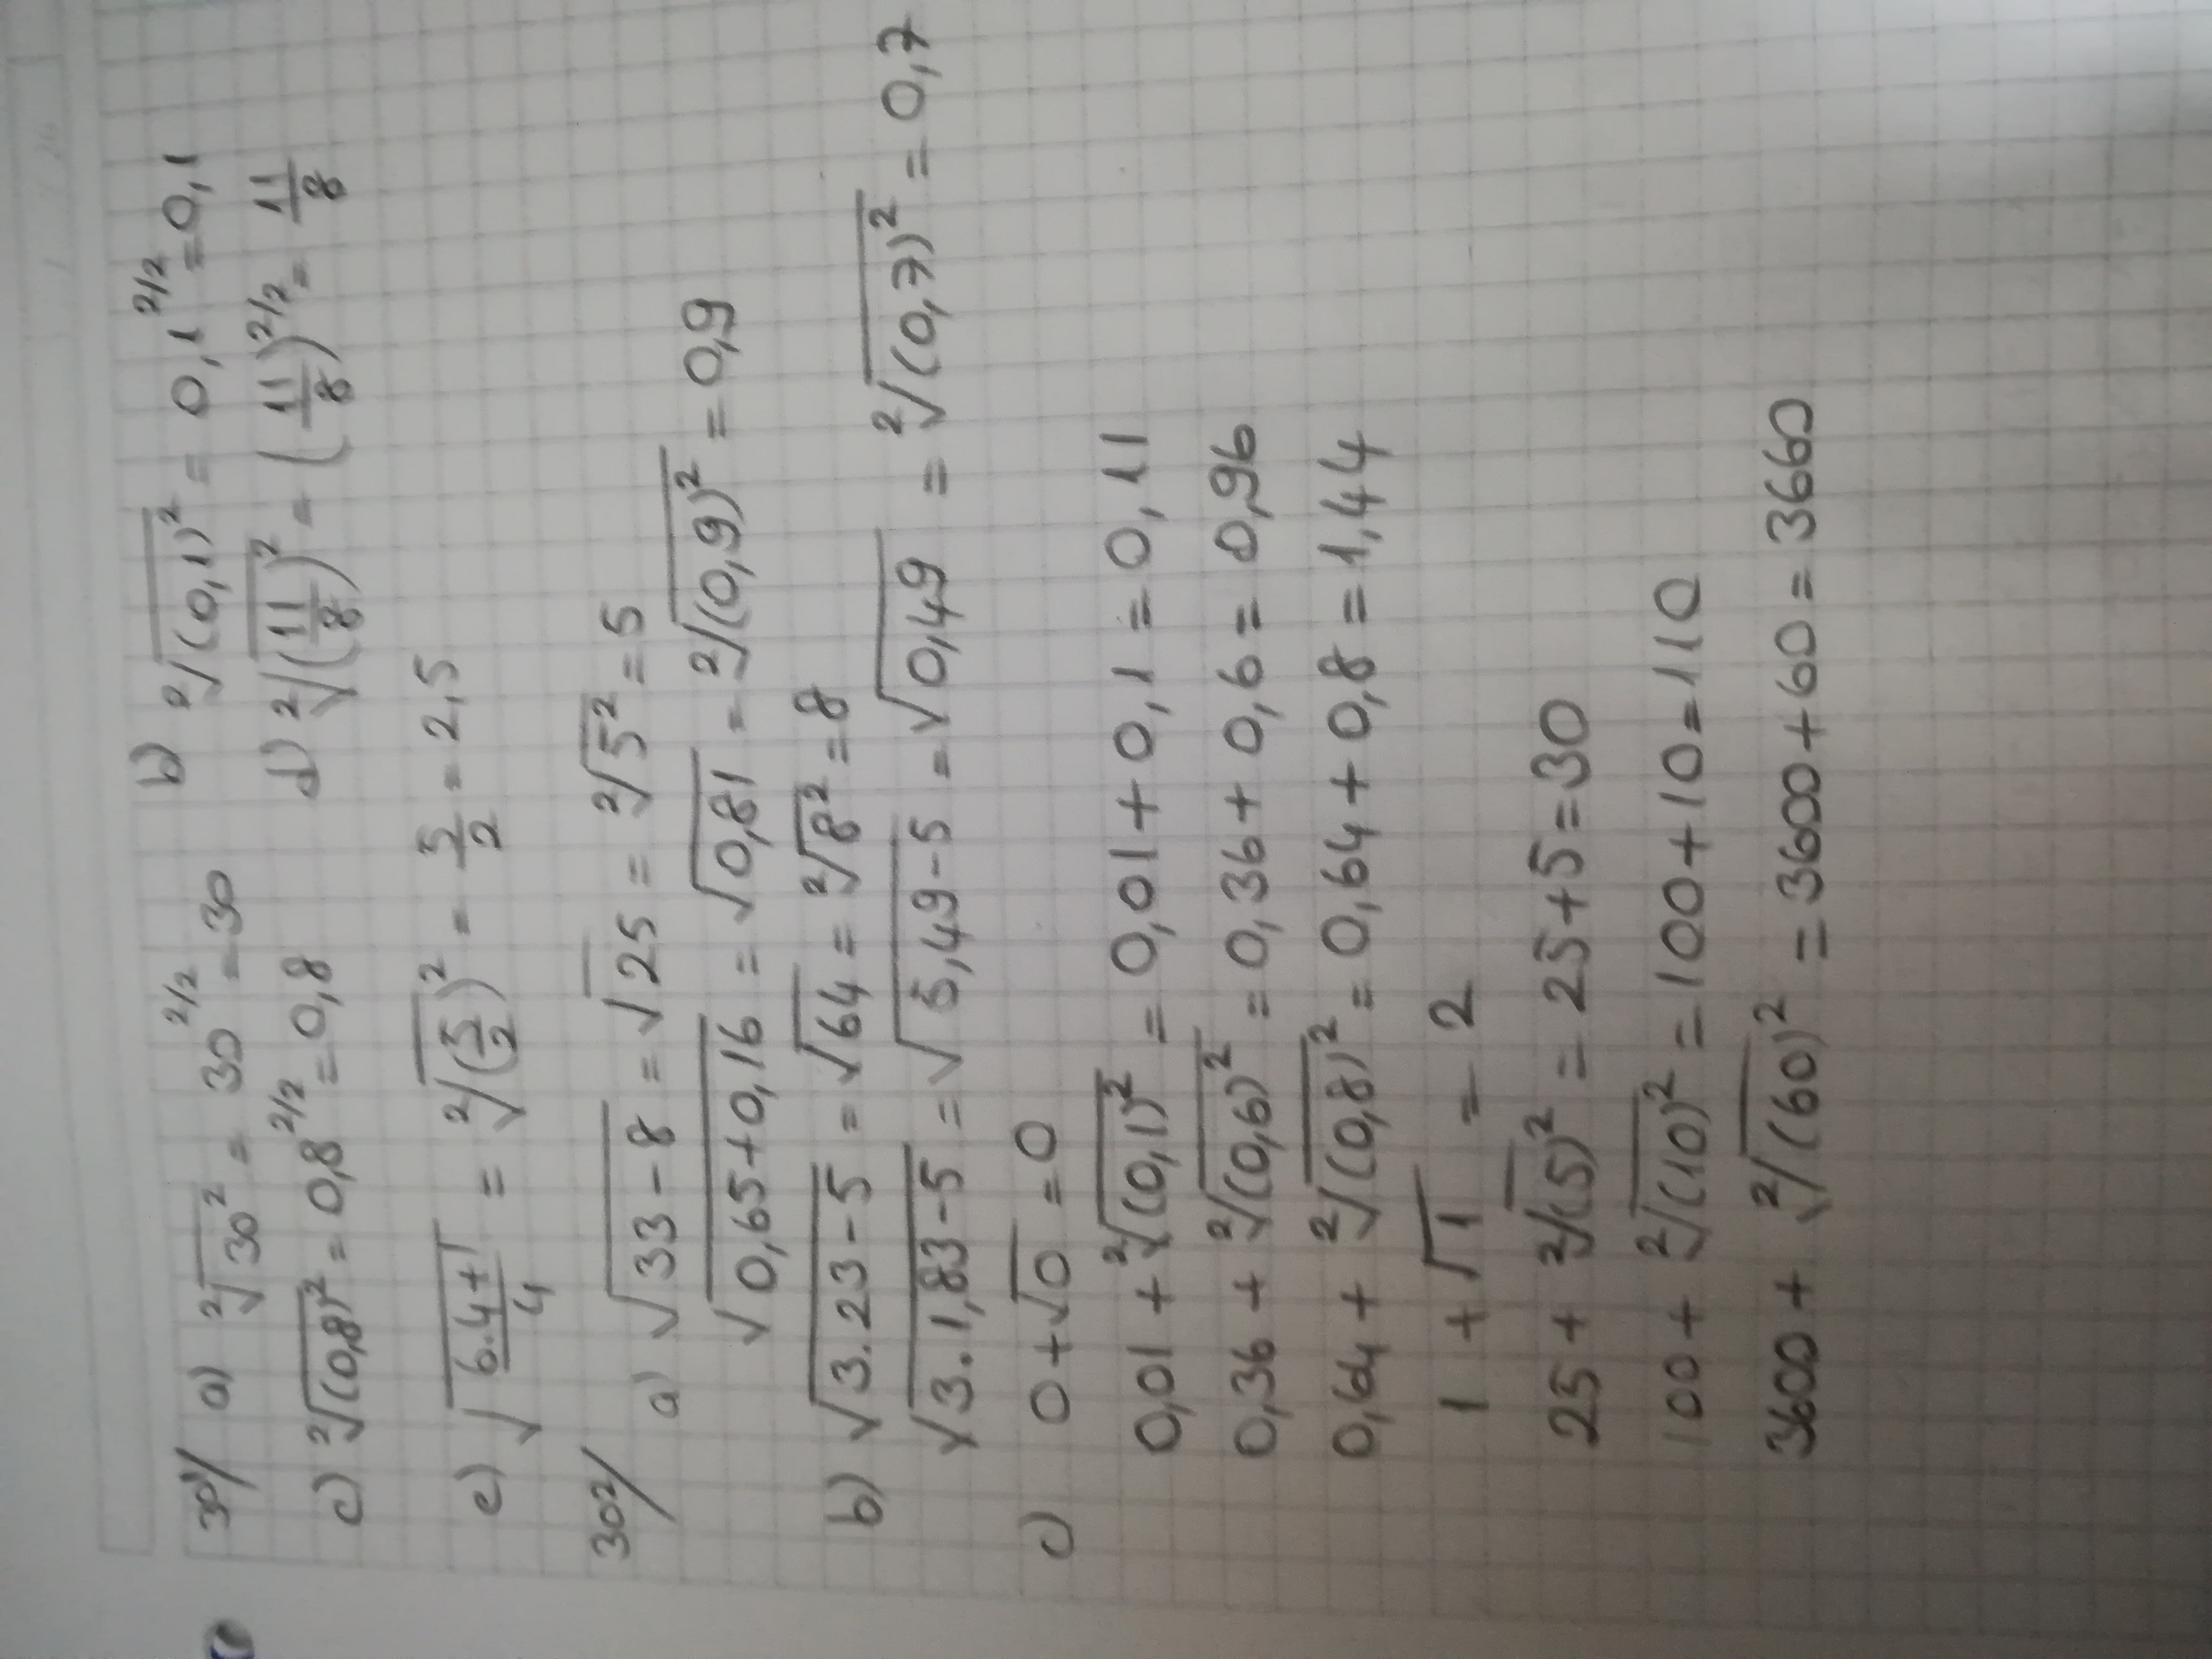 301/ a) ²√30² = 30^2/2 = 30 b) ²√(0,1)² = 0,1^2/2 = 0,1
c) ²√(0,8)² = 0,8^2/2 = 0,8 d) ²√(11/8)² = (11/8)^2/2 = 11/8
e) √(6.4+1/4) = ²√(5/2)² = 5/2 = 2,5
302/ a) √33-8 = √25 = ²√5² = 5
√0,65+0,16 = √0,81 = ²√(0,9)² = 0,9
b) √3.23-5 = √64 = ²√8² = 8
√3.1,83-5 = √5,49-5 = √0,49 = ²√(0,7)² = 0,7
c) 0+√0 = 0
0,01 + ²√(0,1)² = 0,01 + 0,1 = 0,11
0,36 + ²√(0,6)² = 0,36 + 0,6 = 0,96
0,64 + ²√(0,8)² = 0,64 + 0,8 = 1,44
1 + √1 = 2
25 + ²√(5)² = 25+5=30
100 + ²√(10)² = 100+10=110
3600 + ²√(60)² = 3600+60=3660